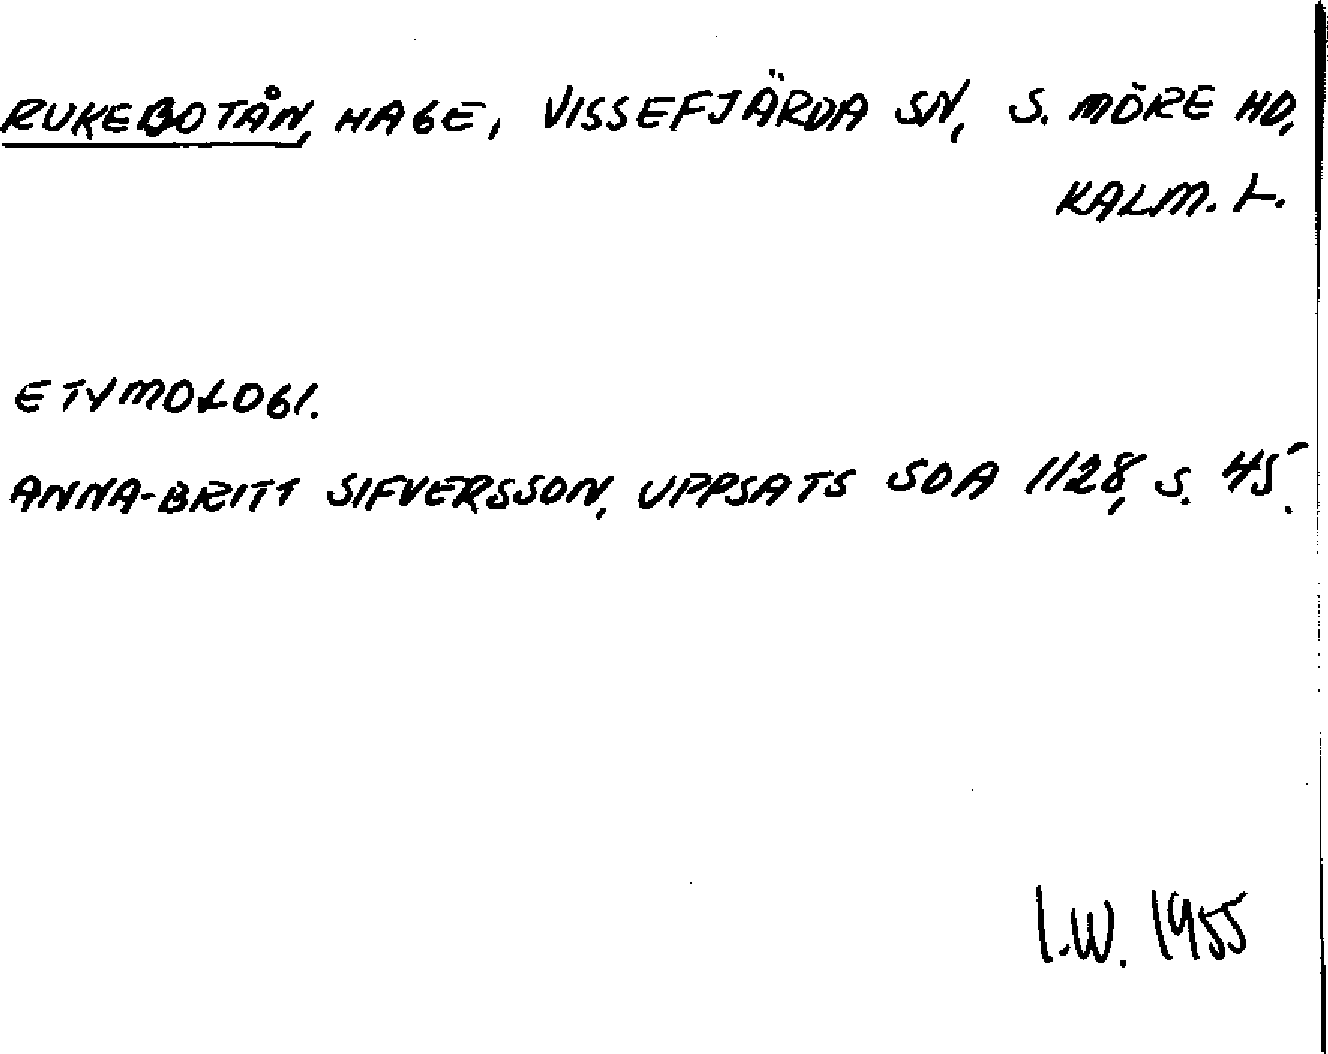 RUKEBOTÅN, HAGE, VISSEFJÄRDA SN, S. MÖRE HD,
KALM. L.
ETYMOLOGI.
ANNA-BRITT SIFVERSSON, UPPSATS SOA 1128, S. 45.
I.W. 1955